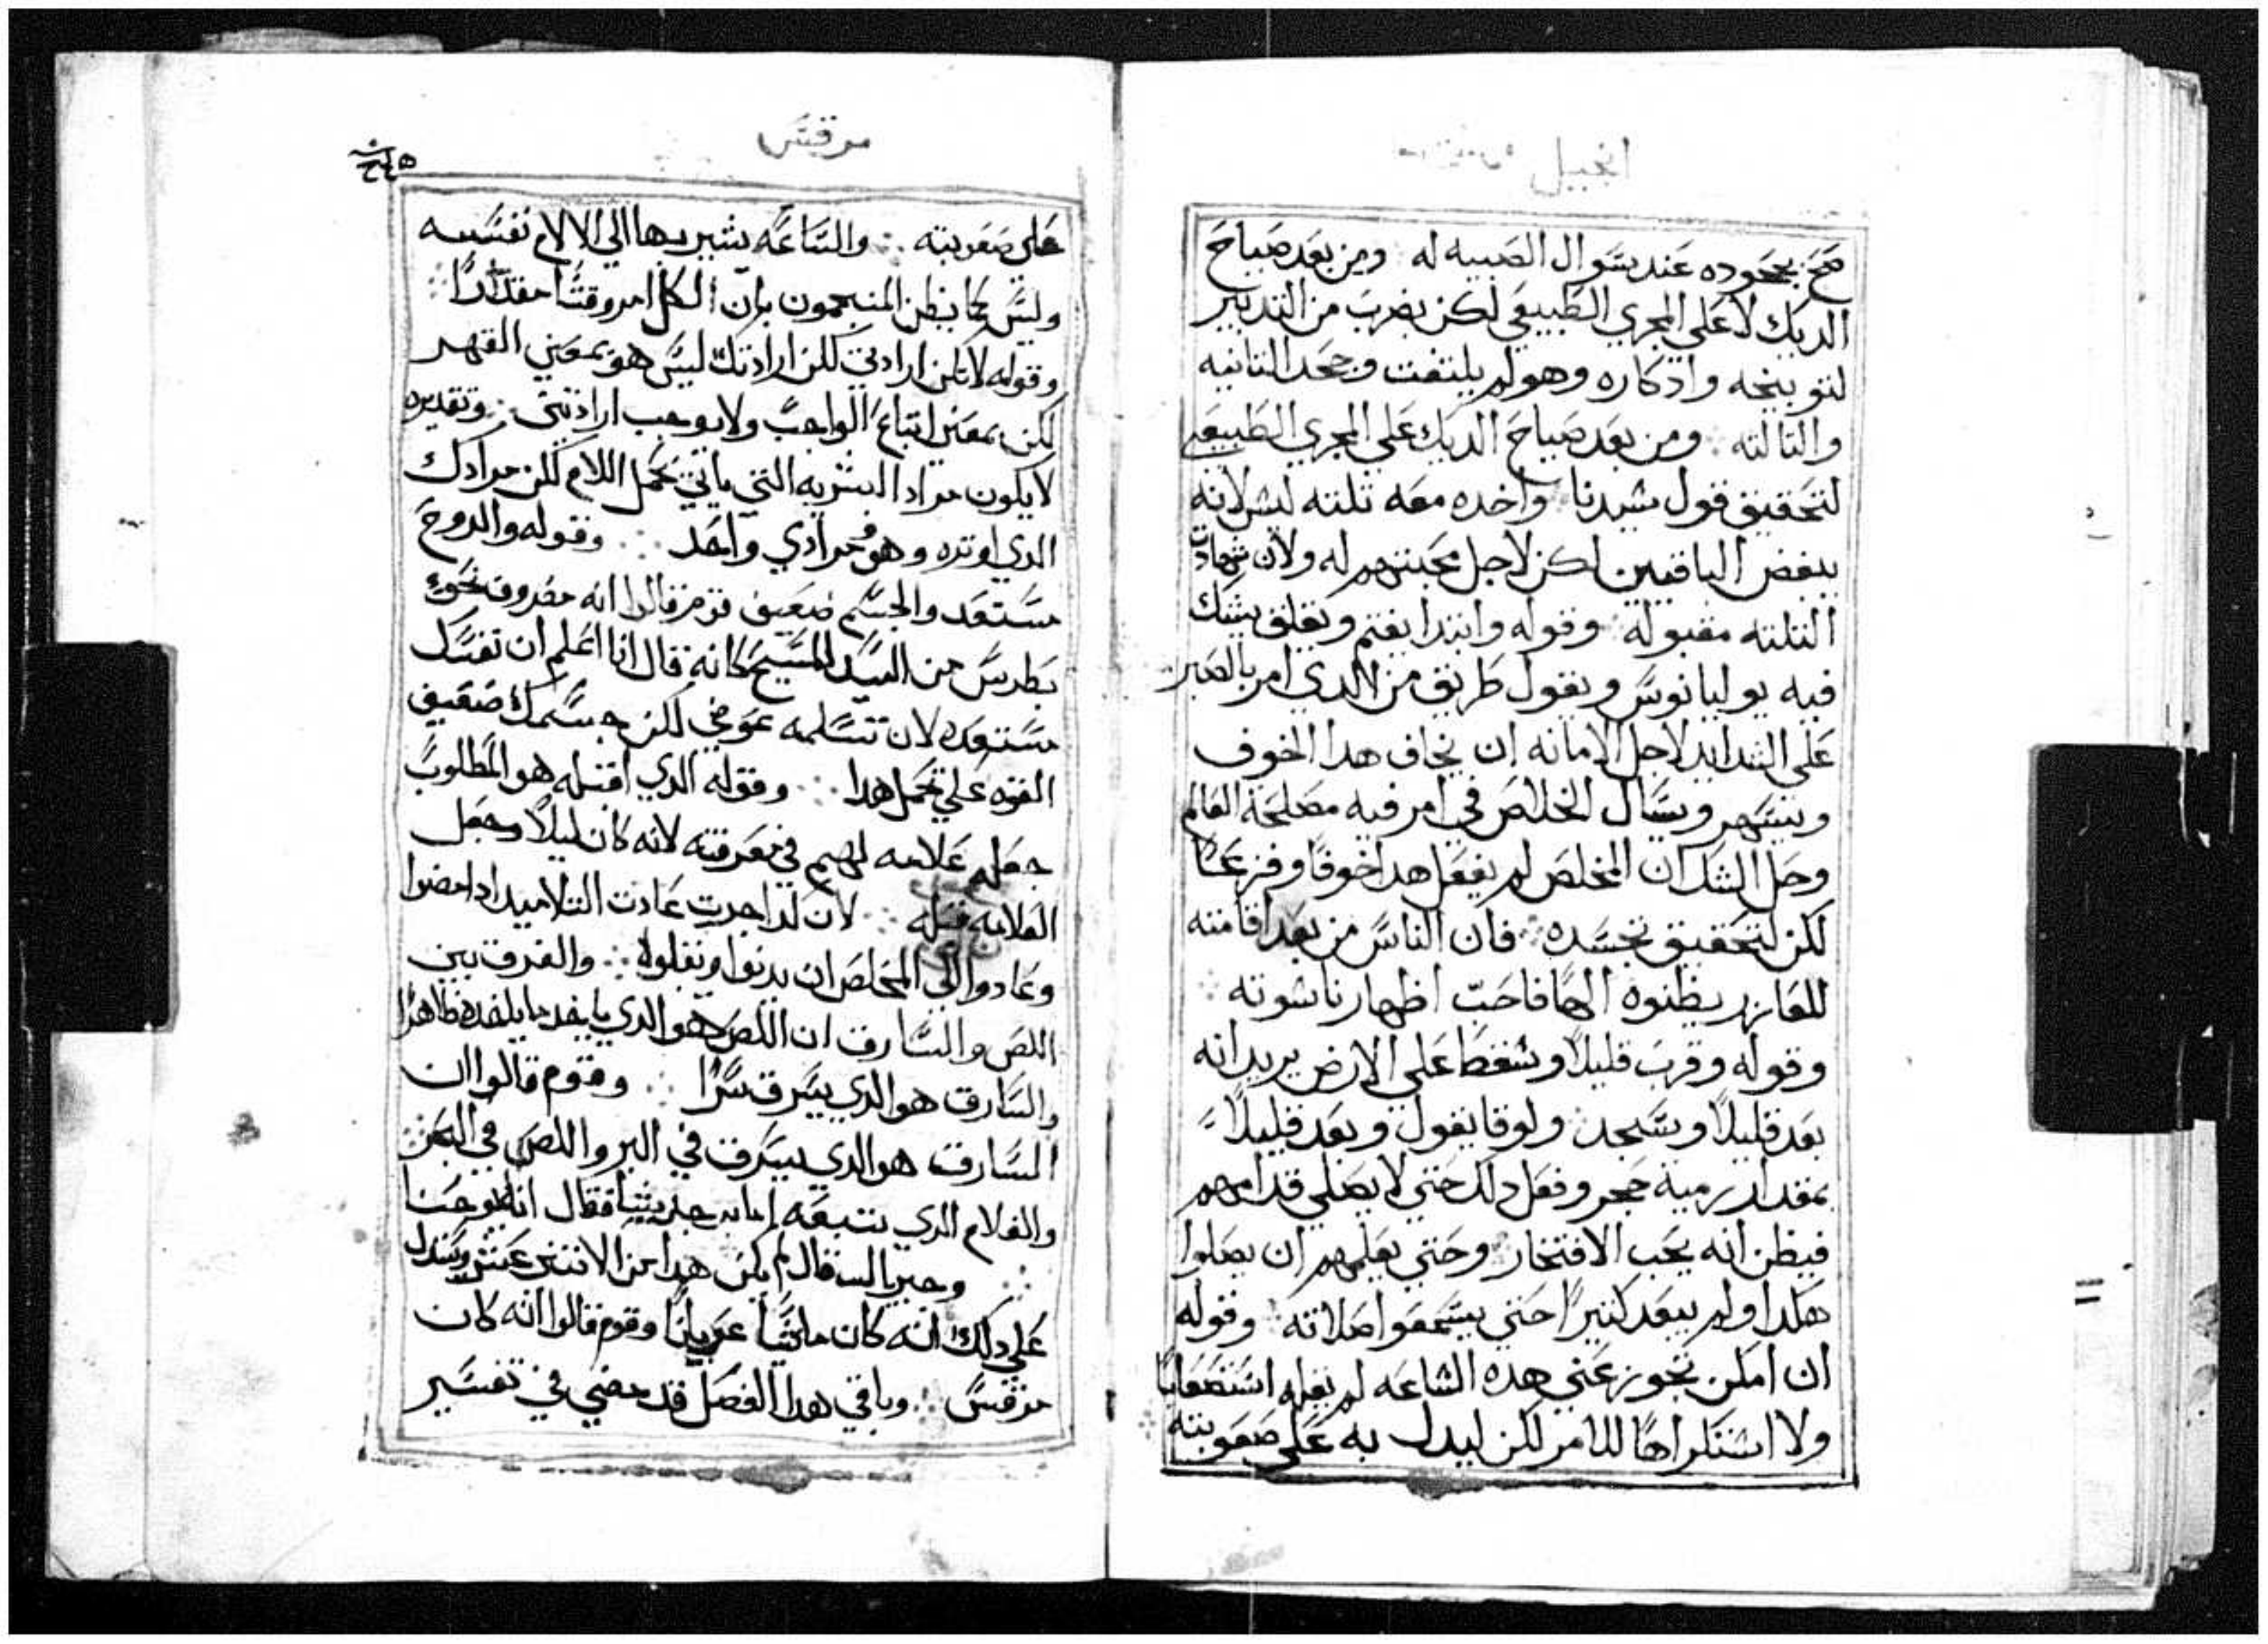 انجيل
صح بجحوده عند سوال الصبيه له ومن بعد صياح
الديك لا على المجري الطبيعي لكن بضرب من التدبير
لتوبيخه وادكاره وهو لم يلتفت وجحد التانيه
والتالته ومن بعد صياح الديك على المجري الطبيعي
لتحقيق قول سيدنا واخده معه تلته ليس لانه
يبغض الباقيين لكن لاجل محبتهم له ولان شهادت
التلته مقبوله وقوله وابتدا يغتم ويقلق يشك
فيه يوليانوس ويقول طريق من الدي امر بالصبر
على الشدايد لاجل الامانه ان يخاف هدا الخوف
ويسهر ويسال الخلاص في امر فيه مصلحة العالم
وحل الشك ان المخلص لم يفعل هدا خوفًا وفزعًا
لكن لتحقيق تجسده فان الناس من بعد اقامته
للعازر يظنوه الهًا فاحب اظهار ناسوته
وقوله وقرب قليلًا وسقط على الارض يريد انه
بعد قليلًا وسجد ولوقا يقول وبعد قليلًا
بمقدار رمية حجر وفعل دلك حتي لا يصلي قدامهم
فيظن انه يحب الافتخار وحتي يعلمهم ان يصلوا
هكدا ولم يبعد كتيرًا حتي يسمعوا صلاته وقوله
ان امكن تجوز عني هده الساعه لم يقله استصعابًا
ولا استكراهًا للامر لكن ليدل به على صعوبته
مرقس
على صعوبته والساعه يشير بها الي الالام نفسه
وليس كما يظن المنجمون بان لكل امر وقتًا مقدارًا
وقوله لا تكن ارادتي لكن ارادتك ليس هو بمعني القهر
لكن بمعني اتباع الواجب ولا يوجب ارادتين وتقديره
لا يكون مراد البشريه التي تابي تحمل الالام لكن مرادك
الدي اوتره وهو مرادي واحد وقوله والروح
مستعد والجسم ضعيف قوم قالوا انه مصروف نحو
بطرس من السيد المسيح كانه قال انا اعلم ان نفسك
مستعده لان تسلمه عوضي لكن جسمك ضعيف
القوه على تحمل هدا وقوله الدي اقبله هو المطلوب
جعله علامه لهم في معرفته لانه كان ليلًا وجعل
العلامه قبله لان كدا جرت عادت التلاميد ادا مضوا
وعادوا الي المخلص ان يدنوا ويقبلوه والفرق بين
اللص والسارق ان اللص هو الدي ياخد ما ياخده ظاهرًا
والسارق هو الدي يسرق سرًا وقوم قالوا ان
السارق هو الدي يسرق في البر واللص في البحر
والغلام الدي يتبعه اما فقال انه يوحنا
وغيره قال لم يكن هدا من الاتني عشر ويستدل
على دلك انه كان ماشيًا عريانًا وقوم قالوا انه كان
مرقس وباقي هدا الفصل قد مضي في تفسير